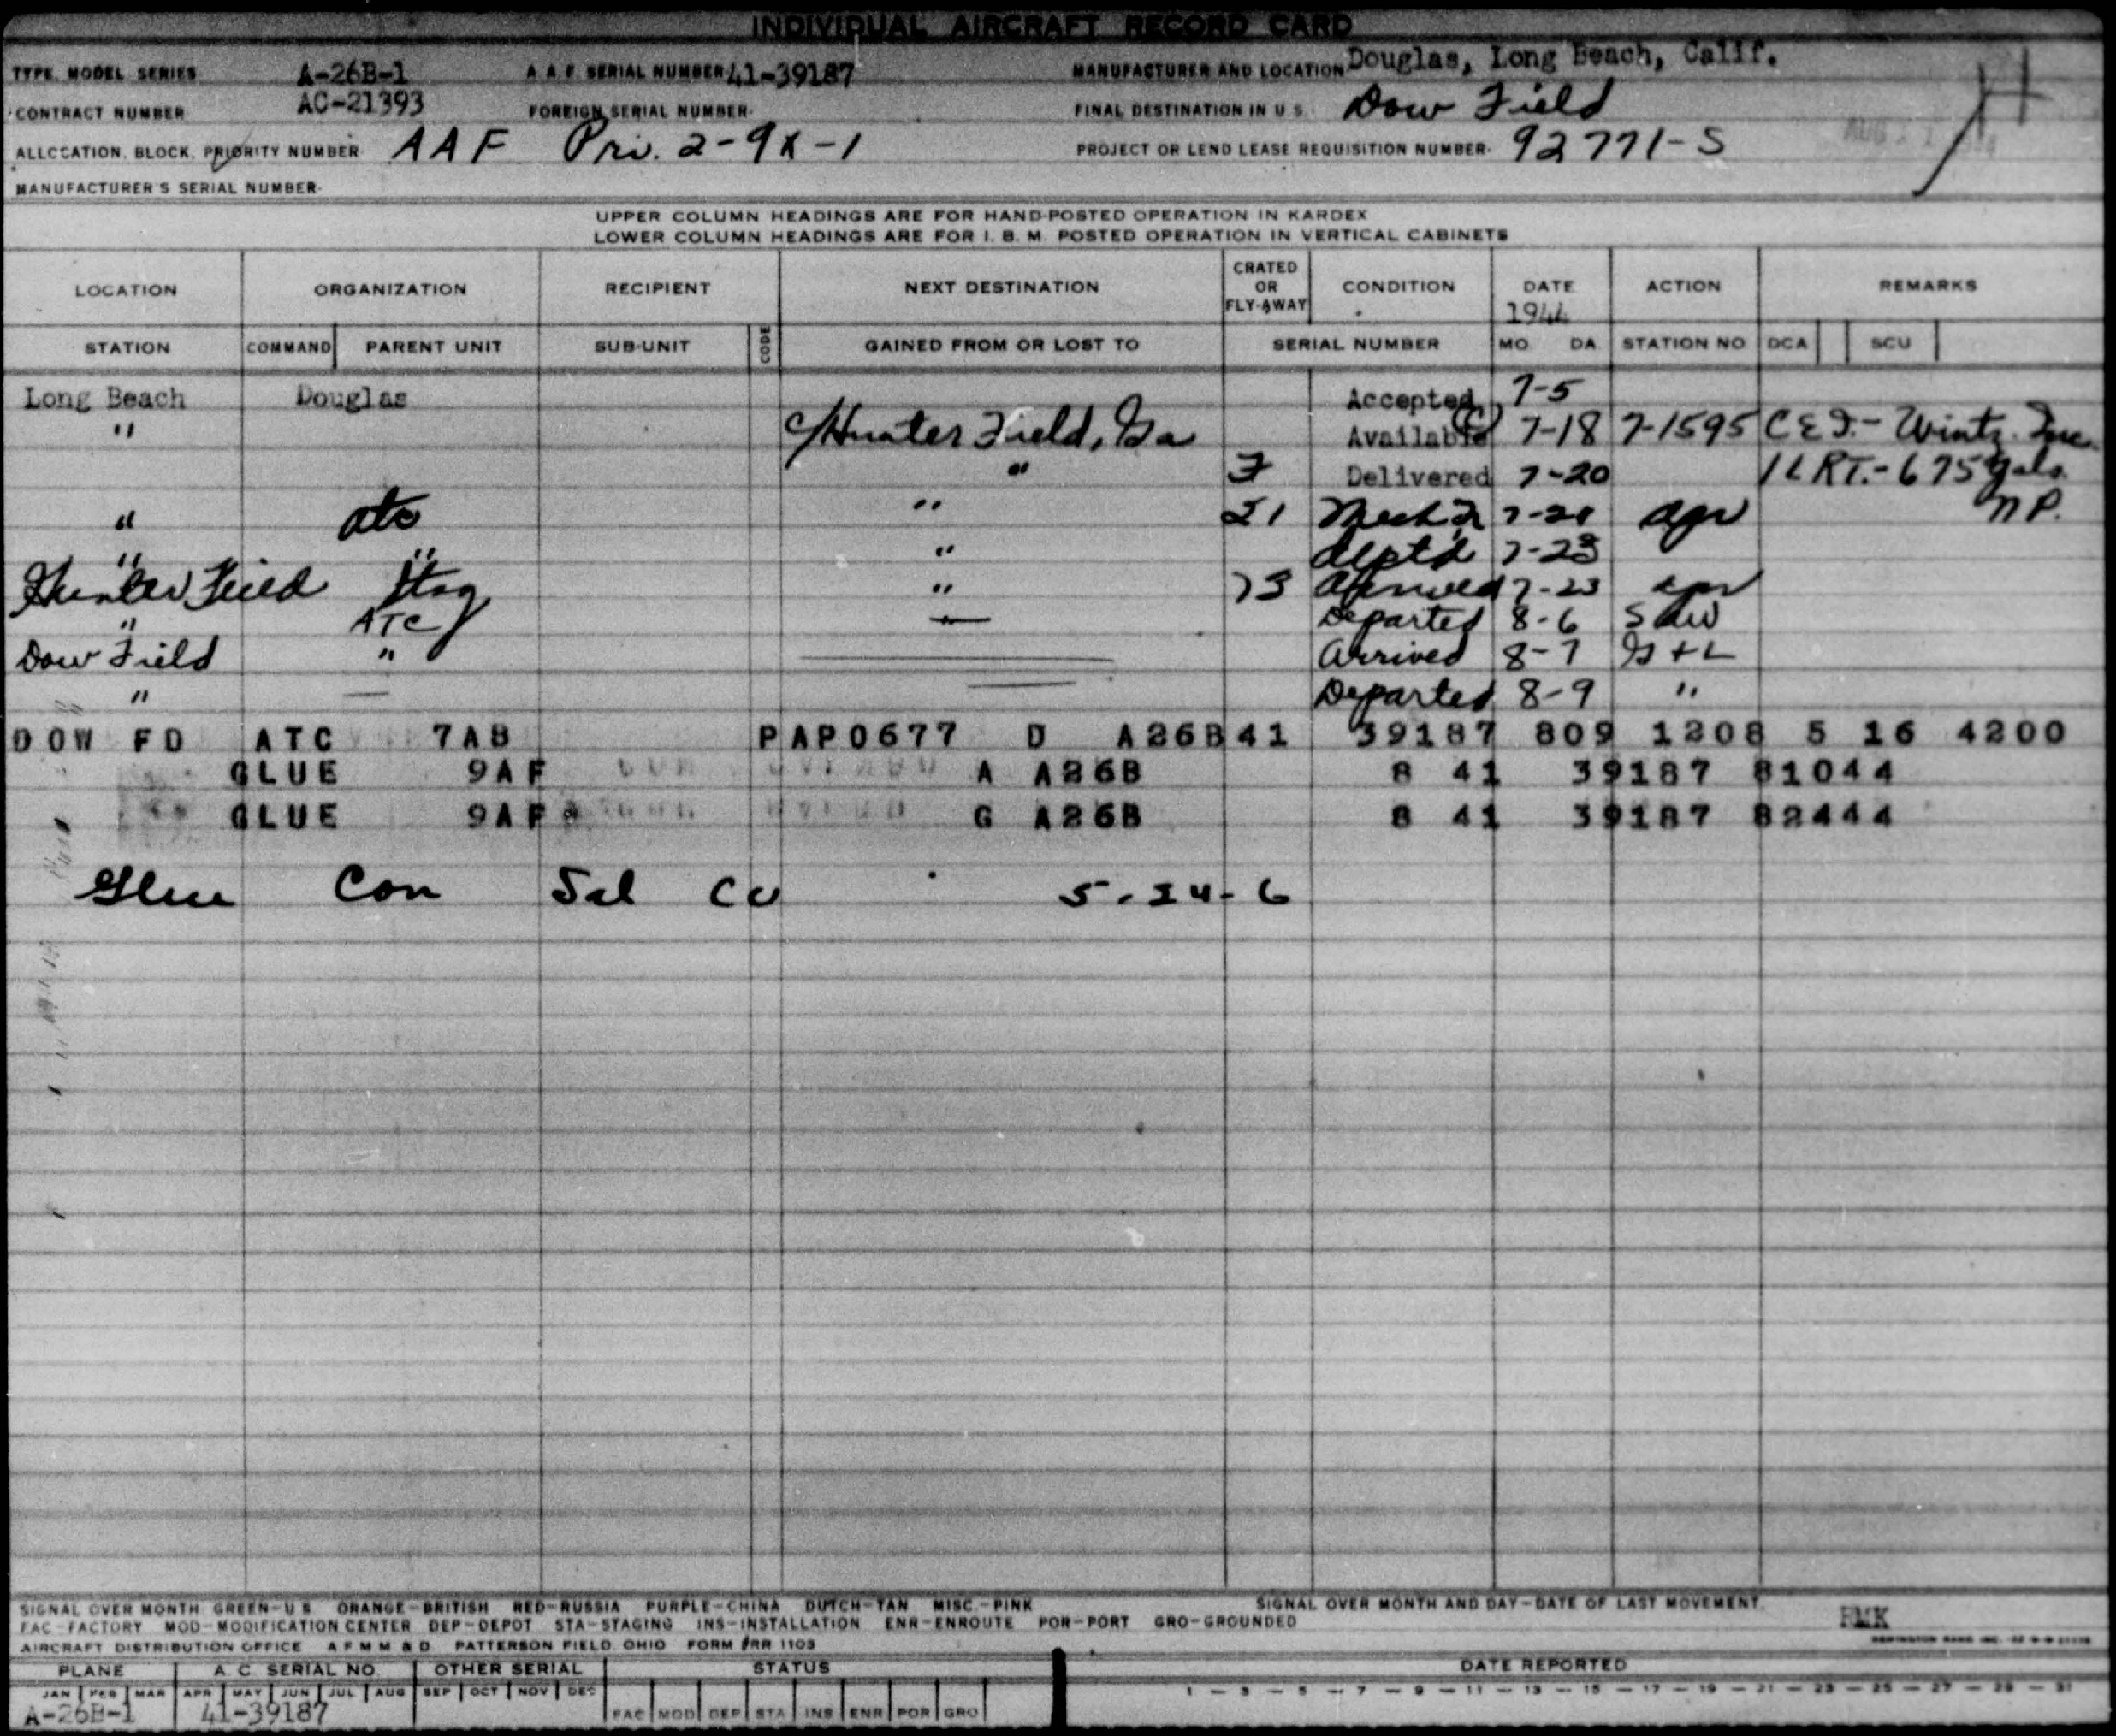 INDIVIDUAL AIRCRAFT RECORD CARD
TYPE, MODEL, SERIES A-26B-1 A.A.F. SERIAL NUMBER 41-39187 MANUFACTURER AND LOCATION Douglas, Long Beach, Calif.
CONTRACT NUMBER AC-21393 FOREIGN SERIAL NUMBER FINAL DESTINATION IN U S Dow Field
ALLOCATION, BLOCK, PRIORITY NUMBER AAF Pri. 2-9X-1 PROJECT OR LEND LEASE REQUISITION NUMBER 92771-S
MANUFACTURER'S SERIAL NUMBER
UPPER COLUMN HEADINGS ARE FOR HAND-POSTED OPERATION IN KARDEX
LOWER COLUMN HEADINGS ARE FOR I. B. M. POSTED OPERATION IN VERTICAL CABINETS
LOCATION ORGANIZATION RECIPIENT NEXT DESTINATION CRATED OR FLY-AWAY CONDITION DATE 1944 ACTION REMARKS
STATION COMMAND PARENT UNIT SUB-UNIT CODE GAINED FROM OR LOST TO SERIAL NUMBER MO DA STATION NO DCA SCU
Long Beach Douglas Accepted 7-5
" Hunter Field, Ga Available 7-18 7-1595 C E F.- Wintz. Inc.
" F Delivered 7-20 1 L RT.- 675 gals.
" atc " 21 7-20 apr N P.
" " " deptd 7-23
Hunter Field Stag " 23 Arrived 7-23 apr
" ATC Departed 8-6 S AW
Dow Field " Arrived 8-7 G + L
" — Departed 8-9 "
DOW FD ATC 7AB PAP0677 D A26B41 39187 809 1208 5 16 4200
GLUE 9AF A A26B 8 41 39187 81044
GLUE 9AF G A26B 8 41 39187 82444
Glue Con Sal CU 5-24-6
SIGNAL OVER MONTH GREEN-U S ORANGE-BRITISH RED-RUSSIA PURPLE-CHINA DUTCH-TAN MISC.-PINK SIGNAL OVER MONTH AND DAY-DATE OF LAST MOVEMENT.
FAC-FACTORY MOD-MODIFICATION CENTER DEP-DEPOT STA-STAGING INS-INSTALLATION ENR-ENROUTE POR-PORT GRO-GROUNDED
AIRCRAFT DISTRIBUTION OFFICE A F M M & D PATTERSON FIELD, OHIO FORM #RR 1103
PLANE A. C. SERIAL NO. OTHER SERIAL STATUS DATE REPORTED
JAN FEB MAR APR MAY JUN JUL AUG SEP OCT NOV DEC 1 — 3 — 5 — 7 — 9 — 11 — 13 — 15 — 17 — 19 — 21 — 23 — 25 — 27 — 29 — 31
A-26B-1 41-39187 FAC MOD DEP STA INS ENR POR GRO